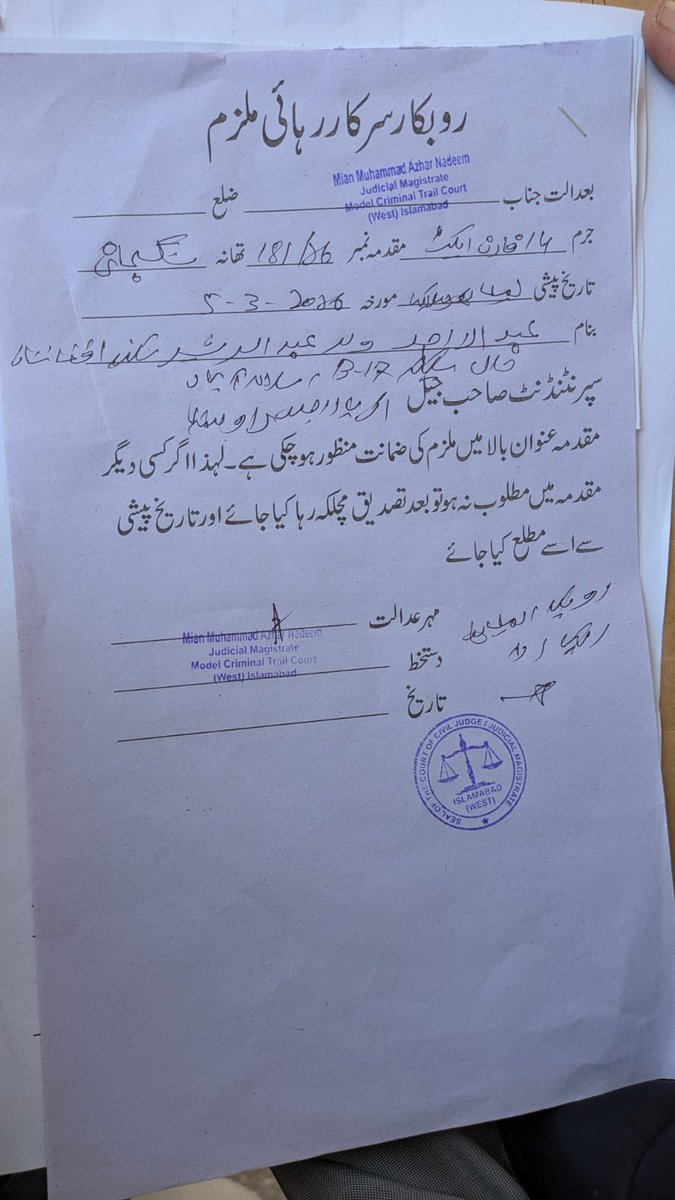 روبکار سرکار رہائی ملزم
Mian Muhammad Azhar Nadeem
Judicial Magistrate
Model Criminal Trail Court
(West) Islamabad
بعدالت جناب ضلع
جرم 14 فارن ایکٹ مقدمہ نمبر 181/26 تھانہ
تاریخ پیشی مورخہ 5-3-2026
بنام ولد عبد الرشید
حال B-17 اسلام آباد
سپرنٹنڈنٹ صاحب جیل
مقدمہ عنوان بالا میں ملزم کی ضمانت منظور ہو چکی ہے۔ لہذا اگر کسی دیگر
مقدمہ میں مطلوب نہ ہو تو بعد تصدیق مچلکہ رہا کیا جائے اور تاریخ پیشی
سے اسے مطلع کیا جائے
مہر عدالت
Mian Muhammad Azhar Nadeem
Judicial Magistrate
Model Criminal Trail Court
(West) Islamabad
دستخط
تاریخ
SEAL OF THE COURT OF CIVIL JUDGE / JUDICIAL MAGISTRATE
ISLAMABAD
(WEST)